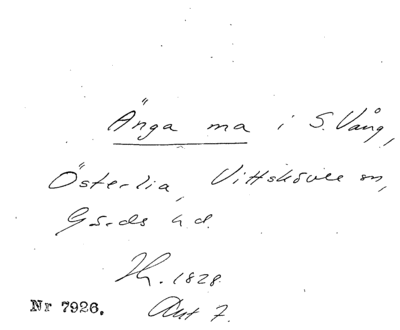 Änga ma i S. Vång,
Österlia, Vittskövle sn,
Gärds hd.
1828.
Nr 7926.